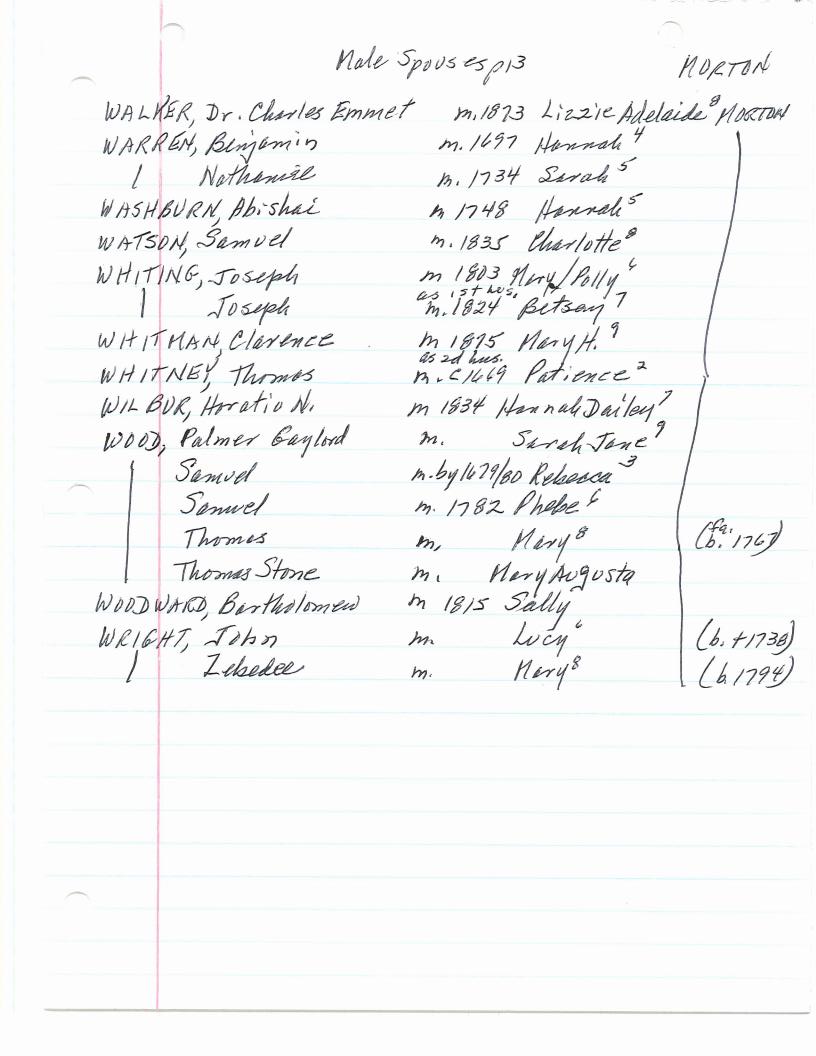 Male Spouses p13 MORTON
WALKER, Dr. Charles Emmet m.1873 Lizzie Adelaide⁸ MORTON
WARREN, Benjamin m. 1697 Hannah⁴
Nathaniel m. 1734 Sarah⁵
WASHBURN, Abishai m 1748 Hannah⁵
WATSON, Samuel m. 1835 Charlotte⁸
WHITING, Joseph m 1803 Mary/Polly⁶
as 1st hus.
Joseph m.1824 Betsey⁷
WHITMAN, Clarence m 1875 Mary H.⁹
as 2d hus.
WHITNEY, Thomas m. c1669 Patience²
WILBUR, Horatio N. m 1834 Hannah Dailey⁷
WOOD, Palmer Gaylord m. Sarah Jane⁹
Samuel m. by 1679/80 Rebecca³
Samuel m. 1782 Phebe⁶
Thomas m. Mary⁸ (fa. b. 1767)
Thomas Stone m. Mary Augusta
WOODWARD, Bartholomew m 1815 Sally
WRIGHT, John m. Lucy⁶ (b. +1738)
Zebedee m. Mary⁸ (b. 1794)